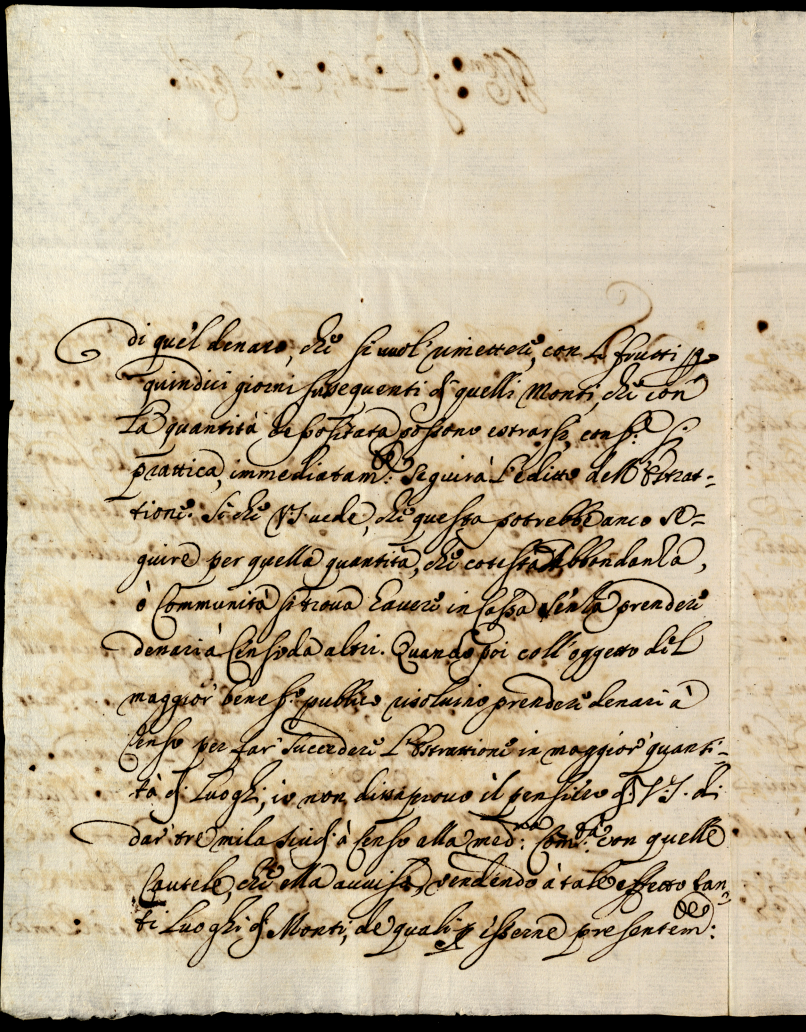 di quel denaro, che si vuol rimettere, con li frutti per
quindici giorni susequenti di quelli Monti, che con
la quantità depositata possono estrarsi, con s.e si
prattica, immediatam.te seguirà l'editto dell'Estrat=
tione. Si che V.S. vede, che questa potrebbe anco se=
guire per quella quantità, che cotesta Abbondanza,
ò Communità si trova havere in Cassa senza prendere
denari à Censo da altri. Quando poi coll'oggetto del
maggior bene publico risolvino prendere denari à
Censo per far succedere l'Estrattione in maggior quanti=
tà di Luoghi, io non disaprovo il pensiero di V.S. di
dar tre mila scudi à Censo alla med.ma Com.tà con quelle
Cautele, che ella avvisa, vendendo à tal effetto tan=
ti Luoghi di Monti, de quali per esserne presentem.te